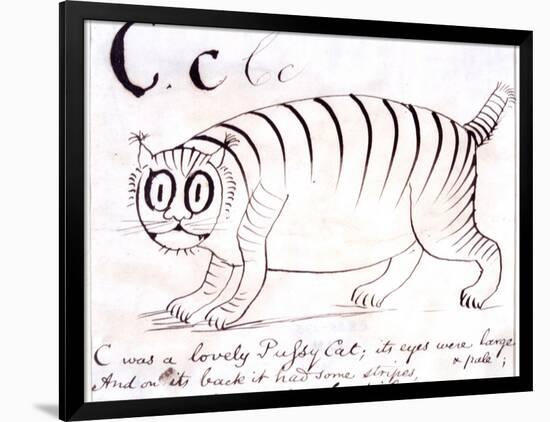 C. c C c
C was a lovely Pussy Cat; its eyes were large
& pale;
And on its back it had some stripes,